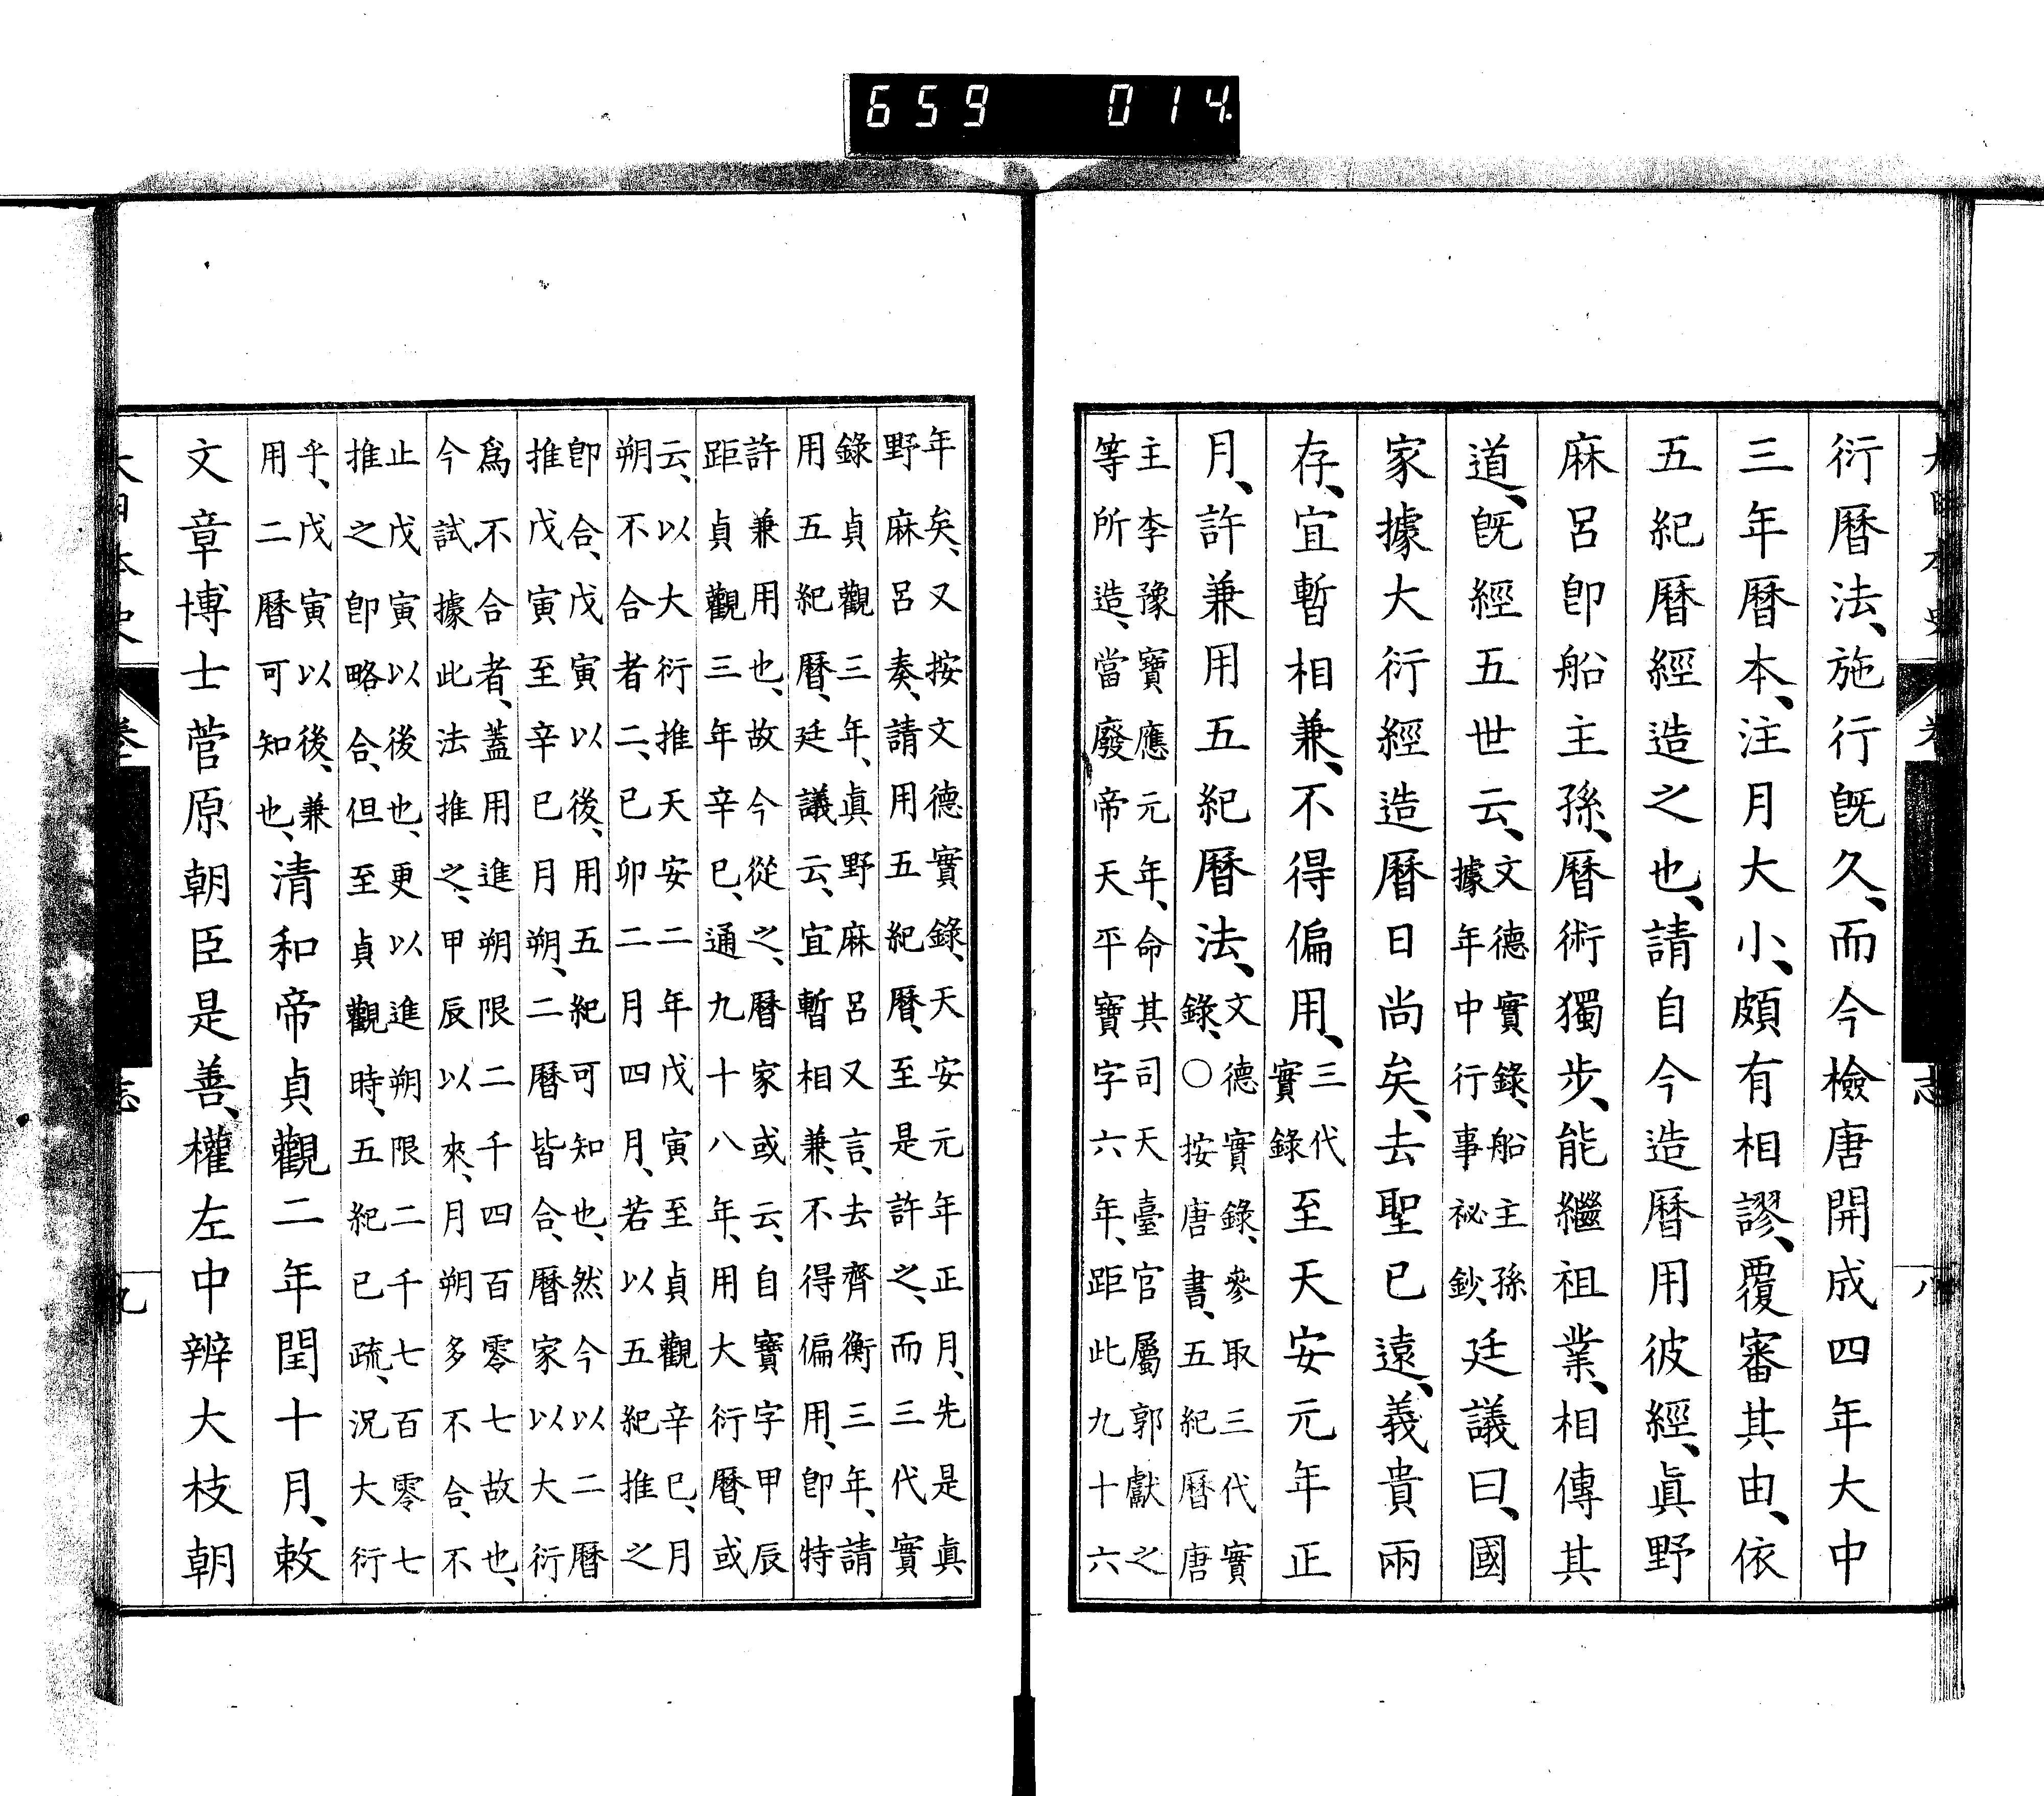 659 014.
衍曆法、施行旣久、而今檢唐開成四年大中
三年曆本、注月大小、頗有相謬、覆審其由、依
五紀曆經造之也、請自今造曆用彼經、眞野
麻呂卽船主孫、曆術獨步、能繼祖業、相傳其
道、旣經五世云、文德實錄、船主孫據年中行事祕鈔、廷議曰、國
家據大衍經造曆日尚矣、去聖已遠、義貴兩
存、宜暫相兼、不得偏用、三代實錄至天安元年正
月、許兼用五紀曆法、文德實錄、參取三代實錄、〇按唐書、五紀曆唐
主李豫寶應元年、命其司天臺官屬郭獻之
等所造、當廢帝天平寶字六年、距此九十六
志
八
年矣、又按文德實錄、天安元年正月、先是眞
野麻呂奏、請用五紀曆、至是許之、而三代實
錄貞觀三年、眞野麻呂又言、去齊衡三年、請
用五紀曆、廷議云、宜暫相兼、不得偏用、卽特
許兼用也、故今從之、曆家或云、自寶字甲辰
距貞觀三年辛巳、通九十八年、用大衍曆、或
云、以大衍推天安二年戊寅至貞觀辛巳、月
朔不合者二、已卯二月四月、若以五紀推之
卽合、戊寅以後、用五紀可知也、然今以二曆
推戊寅至辛巳月朔、二曆皆合、曆家以大衍
爲不合者、蓋用進朔限二千四百零七故也、
今試據此法推之、甲辰以來、月朔多不合、不
止戊寅以後也、更以進朔限二千七百零七
推之卽略合、但至貞觀時、五紀已疏、況大衍
乎、戊寅以後、兼
用二曆可知也、清和帝貞觀二年閏十月、敕
文章博士菅原朝臣是善、權左中辨大枝朝
大日本史
卷
志
九